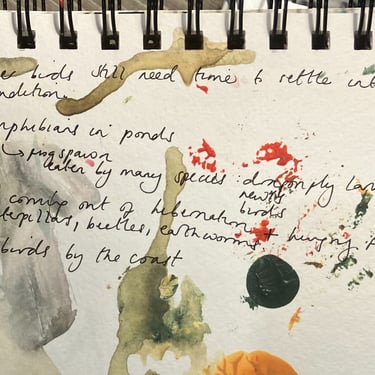 birds still need time to settle int
ndition.
mphibians in ponds
↳ frogspawn
eaten by many species: dragonfly lar
newts
birds
coming out of hibernation
terpillars, beetles, earthworms + hungry
birds by the coast